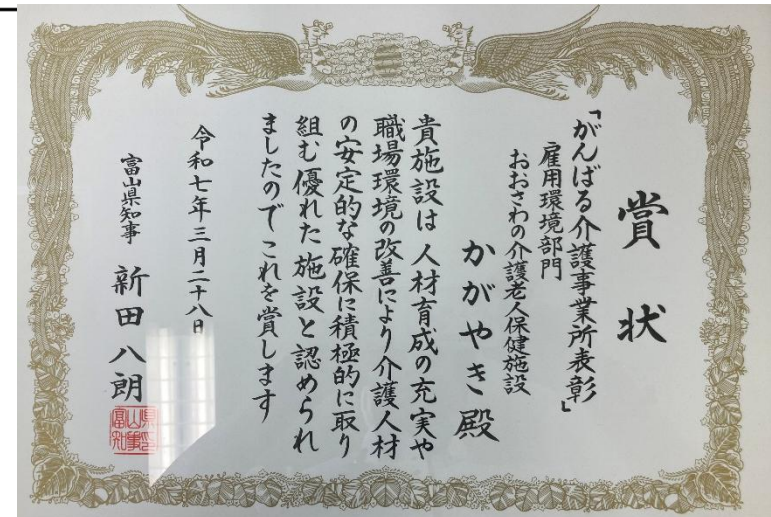 賞状
「がんばる介護事業所表彰」
雇用環境部門
おおさわの介護老人保健施設
かがやき殿
貴施設は人材育成の充実や
職場環境の改善により介護人材
の安定的な確保に積極的に取り
組む優れた施設と認められ
ましたのでこれを賞します
令和七年三月二十八日
富山県知事 新田八朗
富山県知事之印